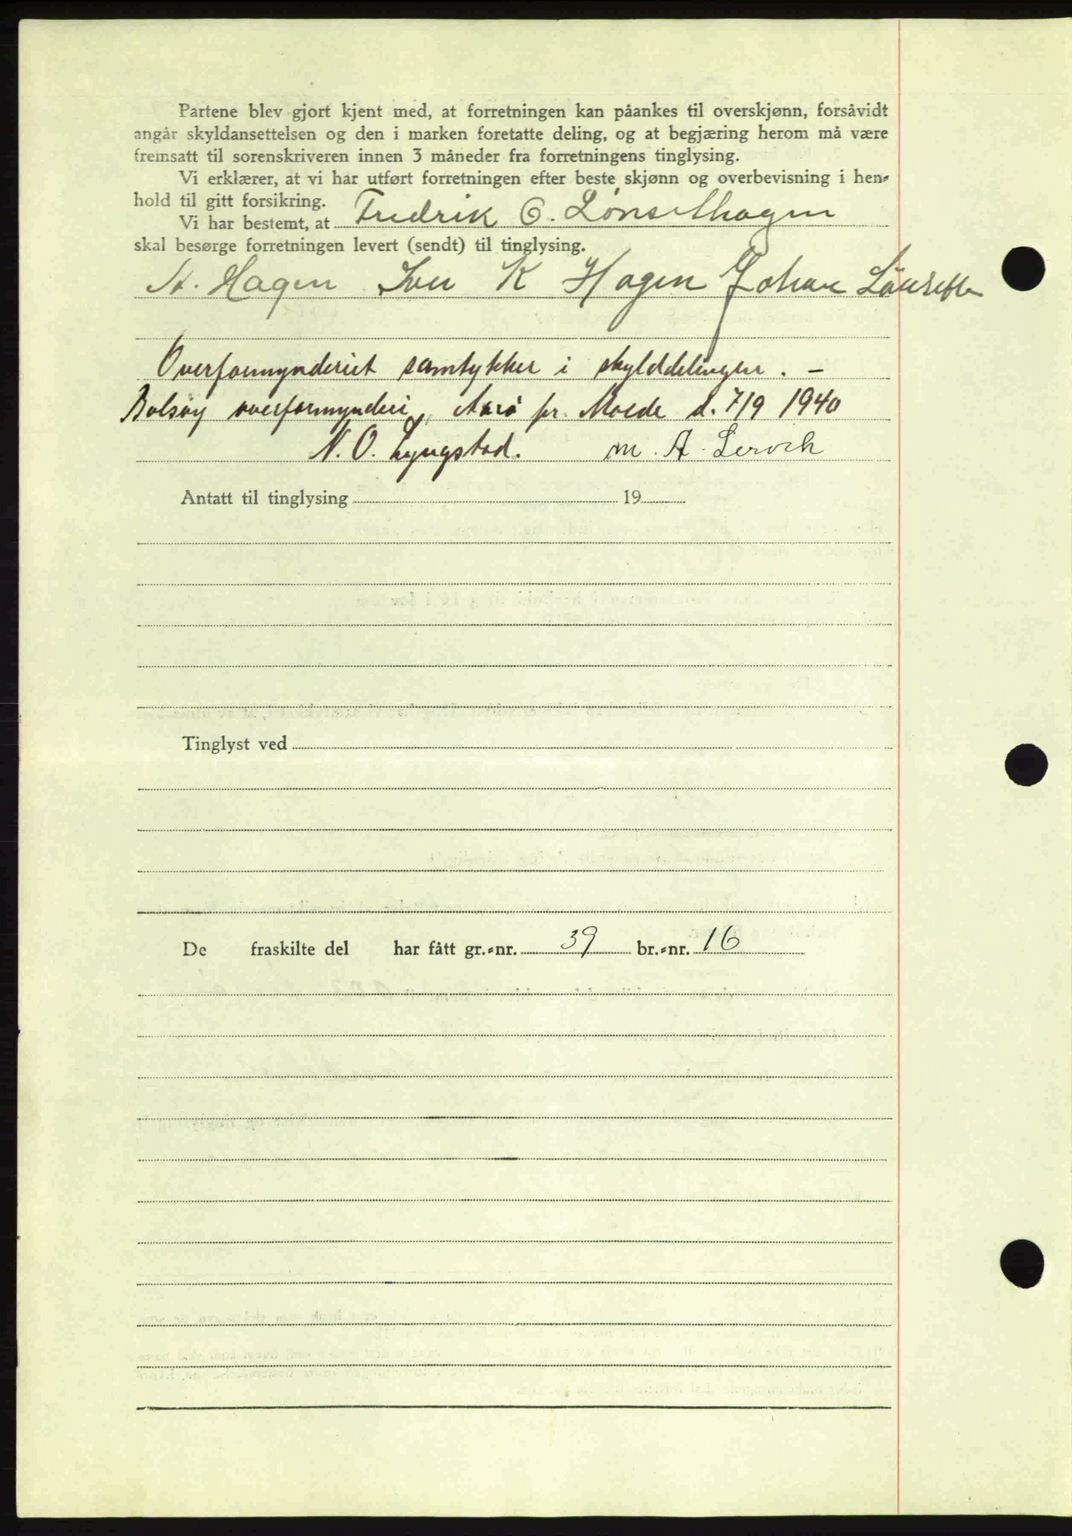 Partene blev gjort kjent med, at forretningen kan påankes til overskjønn, forsåvidt
angår skyldansettelsen og den i marken foretatte deling, og at begjæring herom må være
fremsatt til sorenskriveren innen 3 måneder fra forretningens tinglysing.
Vi erklærer, at vi har utført forretningen efter beste skjønn og overbevisning i hen-
hold til gitt forsikring.
Vi har bestemt, at Fredrik C. Lønsethagen
skal besørge forretningen levert (sendt) til tinglysing.
A. Hagen Iver K Hagen Johan Lönseth
Overformynderiet samtykker i skylddelingen. –
Bolsøy overformynderi, Aarø pr. Molde d. 7/9 1940
N. O. Lyngstad. M. A. Lervik
Antatt til tinglysing 19
Tinglyst ved
De fraskilte del har fått gr.-nr. 39 br.-nr. 16